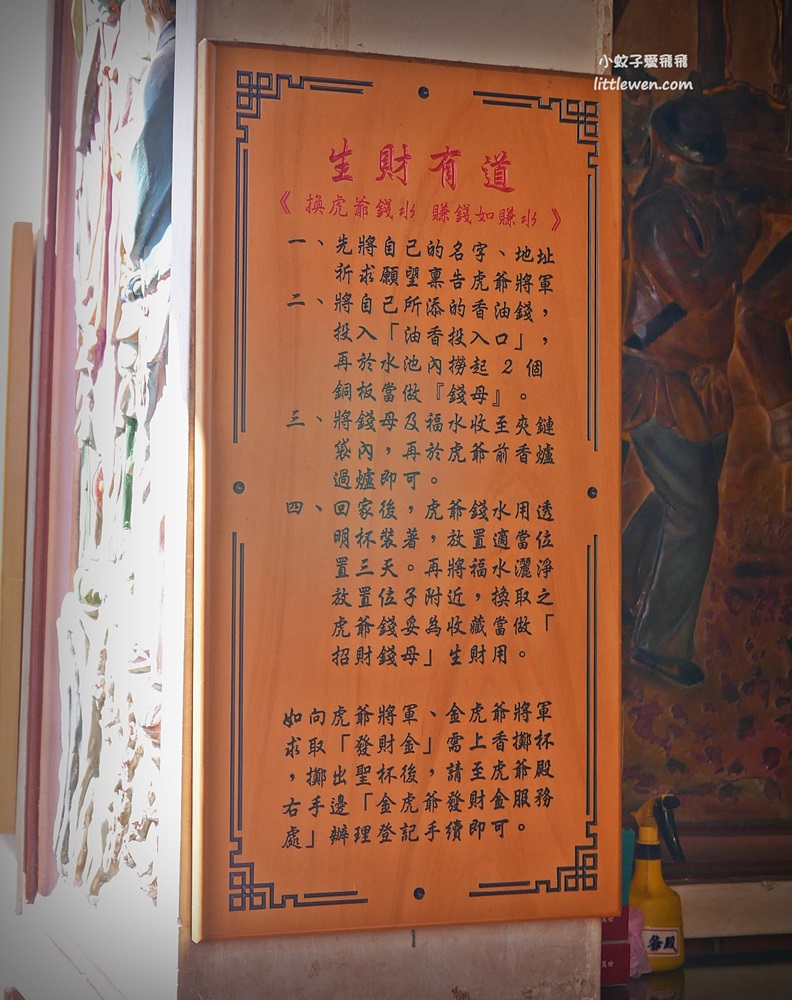 小蚊子愛飛飛
littlewen.com
生財有道
《 換虎爺錢水 賺錢如賺水 》
一、先將自己的名字、地址
祈求願望稟告虎爺將軍
二、將自己所添的香油錢，
投入「油香投入口」，
再於水池內撈起 2 個
銅板當做『錢母』。
三、將錢母及福水收至夾鏈
袋內，再於虎爺前香爐
過爐即可。
四、回家後，虎爺錢水用透
明杯裝著，放置適當位
置三天。再將福水灑淨
放置位子附近，換取之
虎爺錢妥為收藏當做「
招財錢母」生財用。
如向虎爺將軍、金虎爺將軍
求取「發財金」需上香擲杯
，擲出聖杯後，請至虎爺殿
右手邊「金虎爺發財金服務
處」辦理登記手續即可。
爺殿